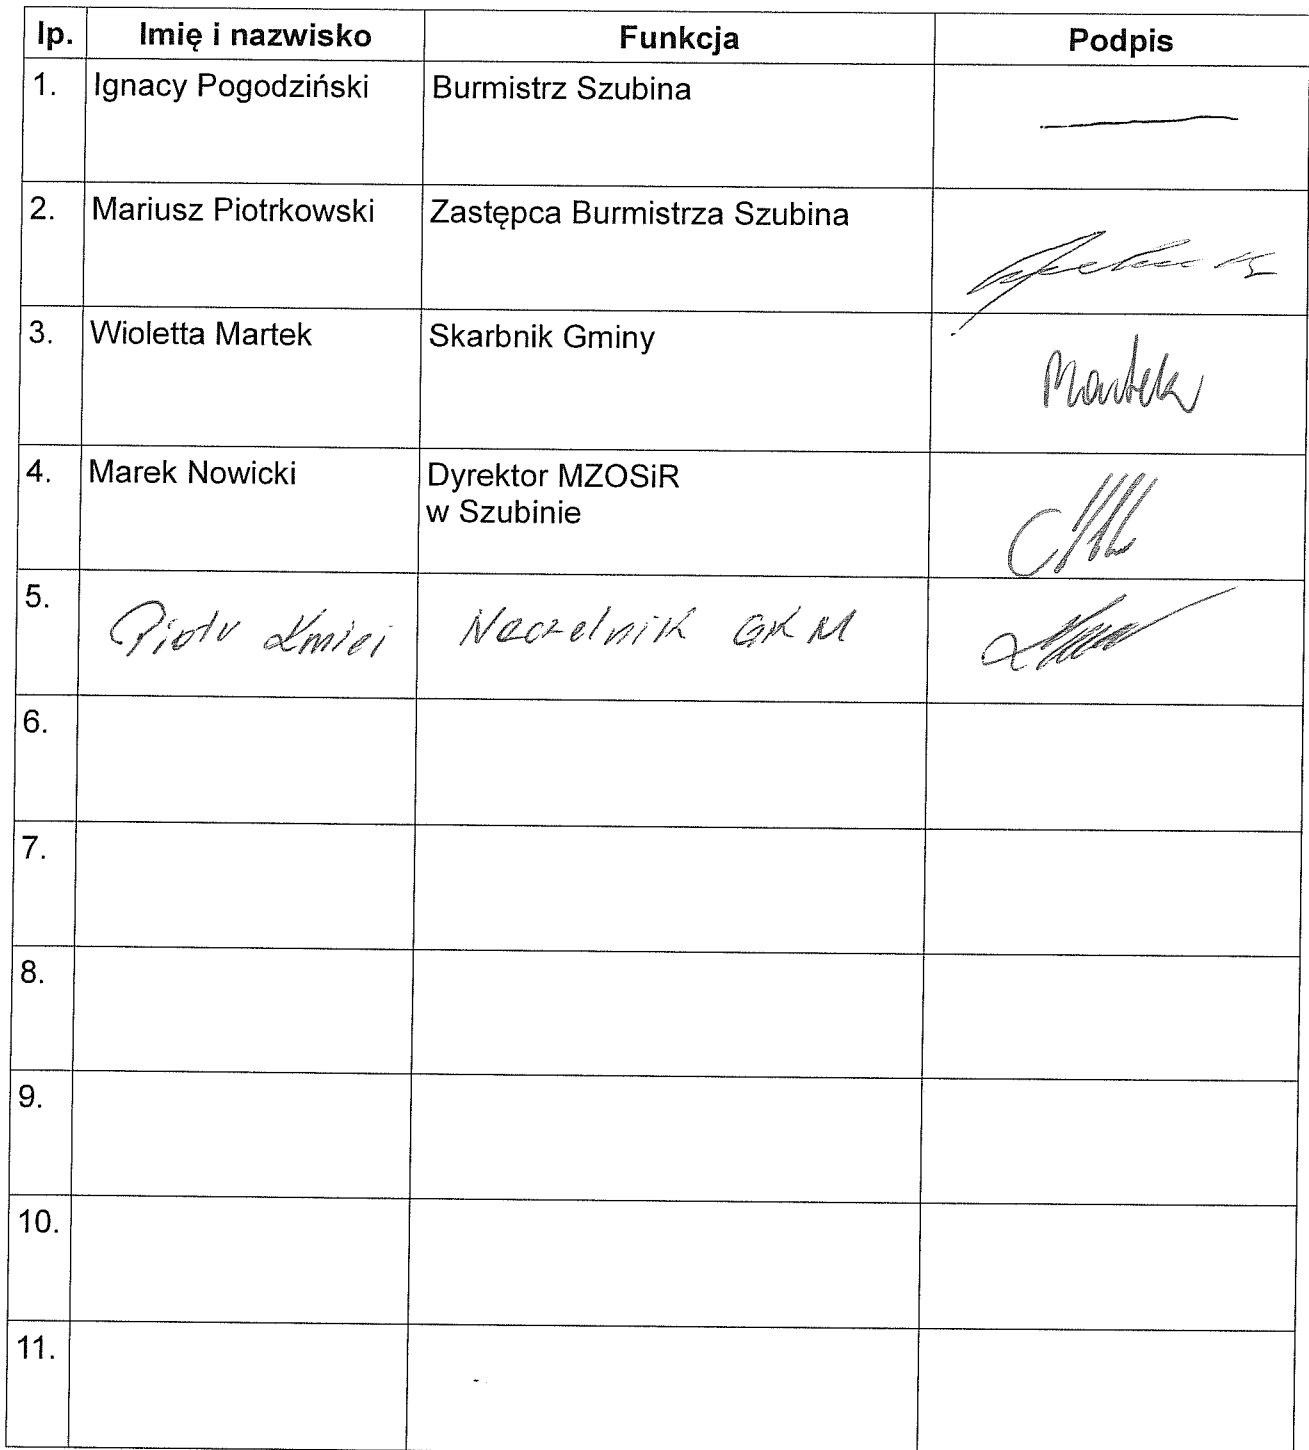 lp. Imię i nazwisko Funkcja Podpis
1. Ignacy Pogodziński Burmistrz Szubina
2. Mariusz Piotrkowski Zastępca Burmistrza Szubina
3. Wioletta Martek Skarbnik Gminy Martek
4. Marek Nowicki Dyrektor MZOSiR
w Szubinie
5. Piotr Naczelnik GKM
6.
7.
8.
9.
10.
11.